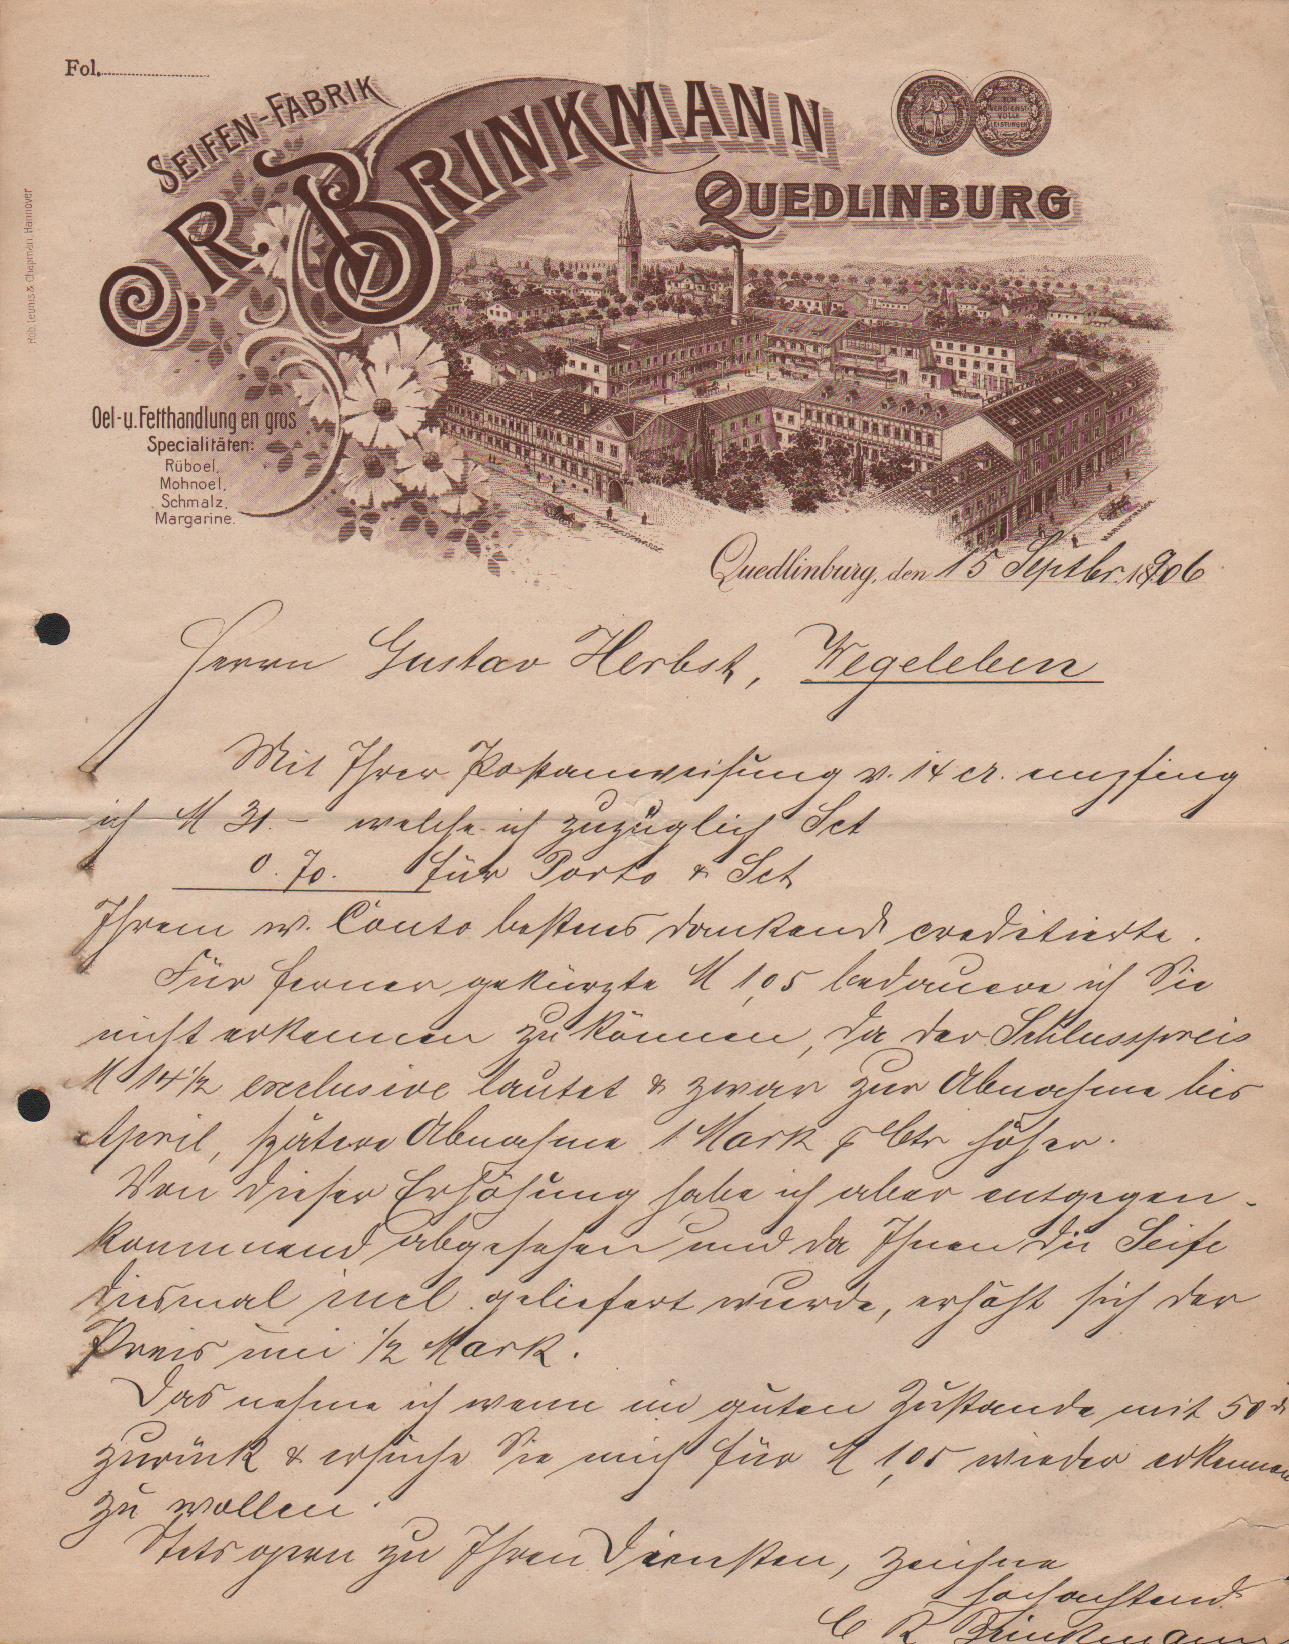 Fol.
SEIFEN-FABRIK
C.R. BRINKMANN
QUEDLINBURG
ZUM VERDIENST VOLLE LEISTUNGEN
Rob. Leunis & Chapman, Hannover
Oel- u. Fetthandlung en gros
Specialitäten:
Rüboel,
Mohnoel,
Schmalz,
Margarine.
Quedlinburg, den 15 Septbr. 1906
Herrn Gustav Herbst, Wegeleben
Mit Ihrer Postanweisung v. 14 cr. empfing
ich M 31.- welche ich zuzüglich Sct
0.70. für Porto & Sct
Ihrem w. Conto bestens dankend creditierte.
Für ferner gekürzte M 1,05 bedauere ich Sie
nicht erkennen zu können, da der Schlusspreis
M 14½ exclusive lautet & zwar zur Abnahme bis
April, spätere Abnahme 1 Mark p Ctr höher.
Von dieser Erhöhung habe ich aber entgegen-
kommend abgesehen und da Ihnen die Seife
diesmal incl. geliefert wurde, erhöht sich der
Preis um ½ Mark.
Das nehme ich wenn im guten Zustande mit 50 d
zurück & ersuche Sie mich für M 1,05 wieder erkennen
zu wollen.
Stets gern zu Ihren Diensten, zeichne
hochachtend
C R Brinkmann